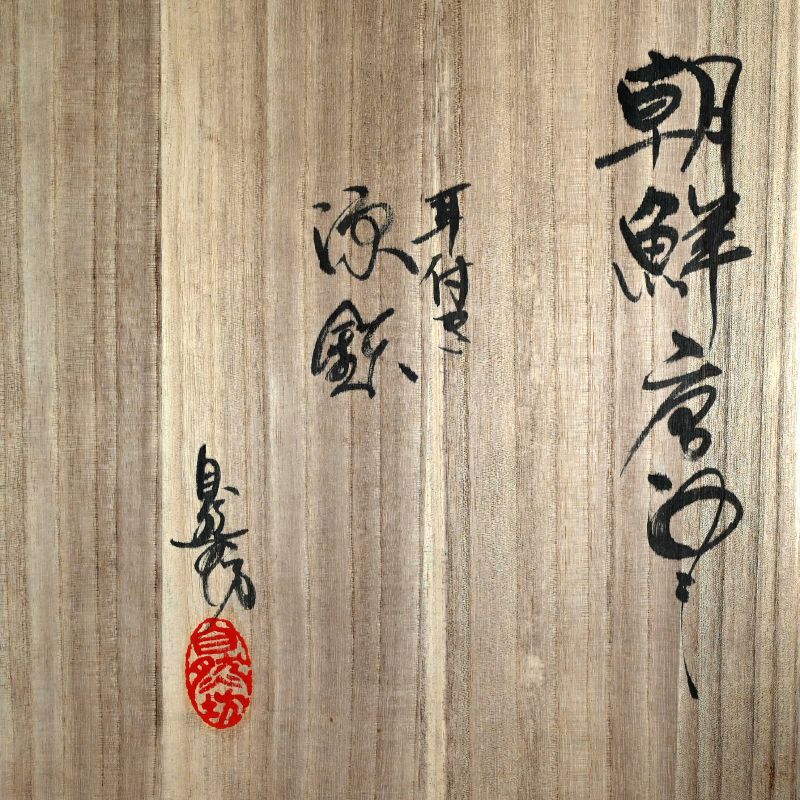 朝鮮唐津
耳付き
流鉢
自然坊
自然坊